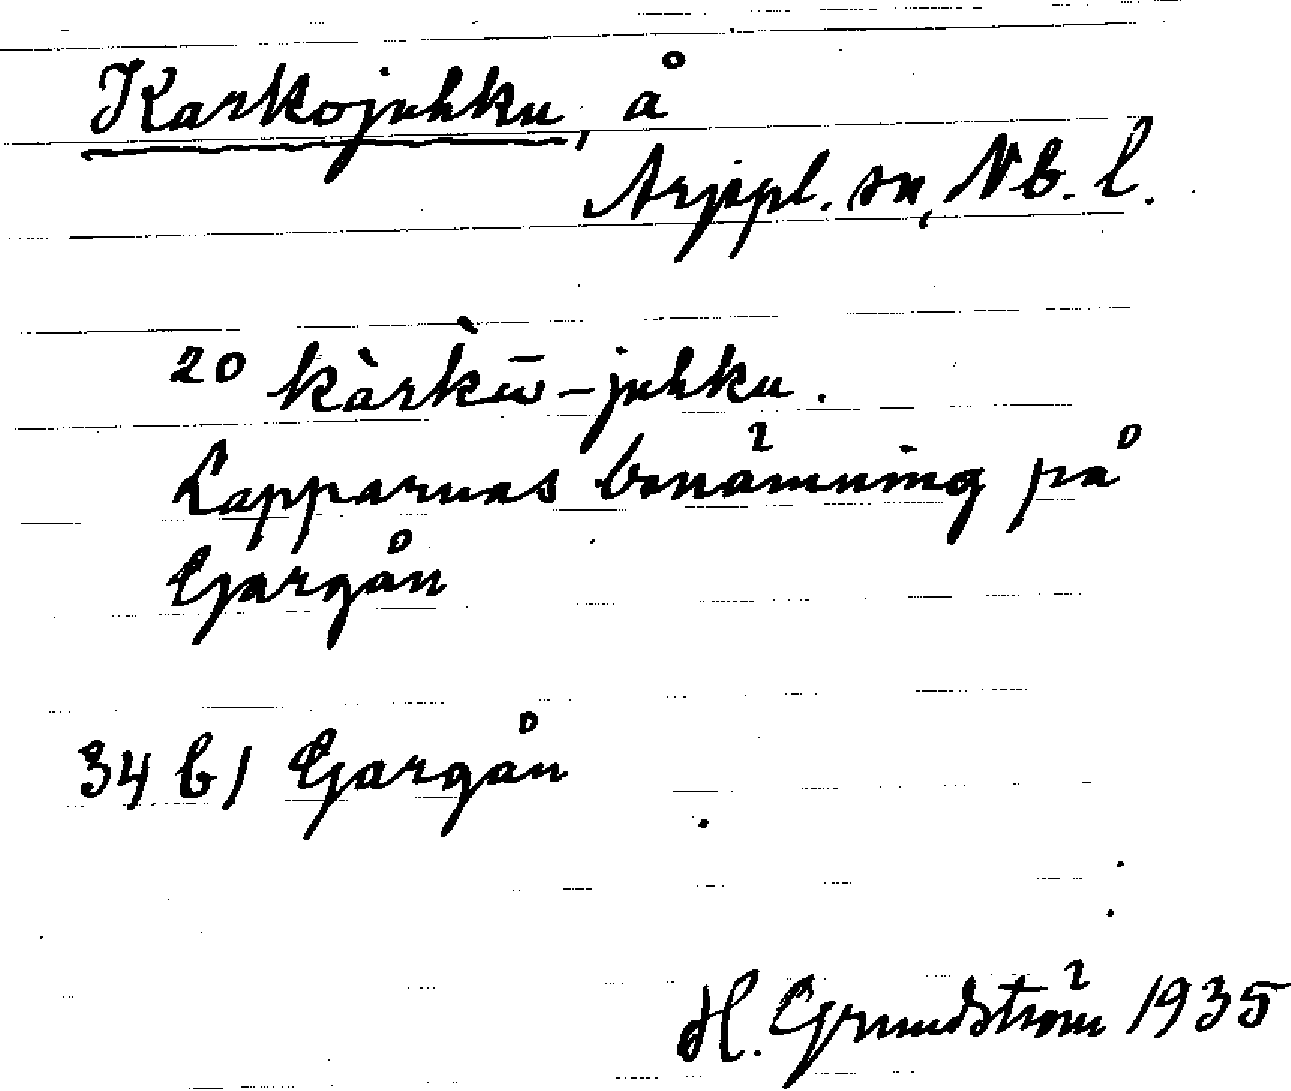 Karkojuhku, å
Arjepl. sn, Nb. l.
20 kàrkὼ̄-juhku.
Lapparnas benämning på
Gargån
34 b/ Gargån
H. Grundström 1935